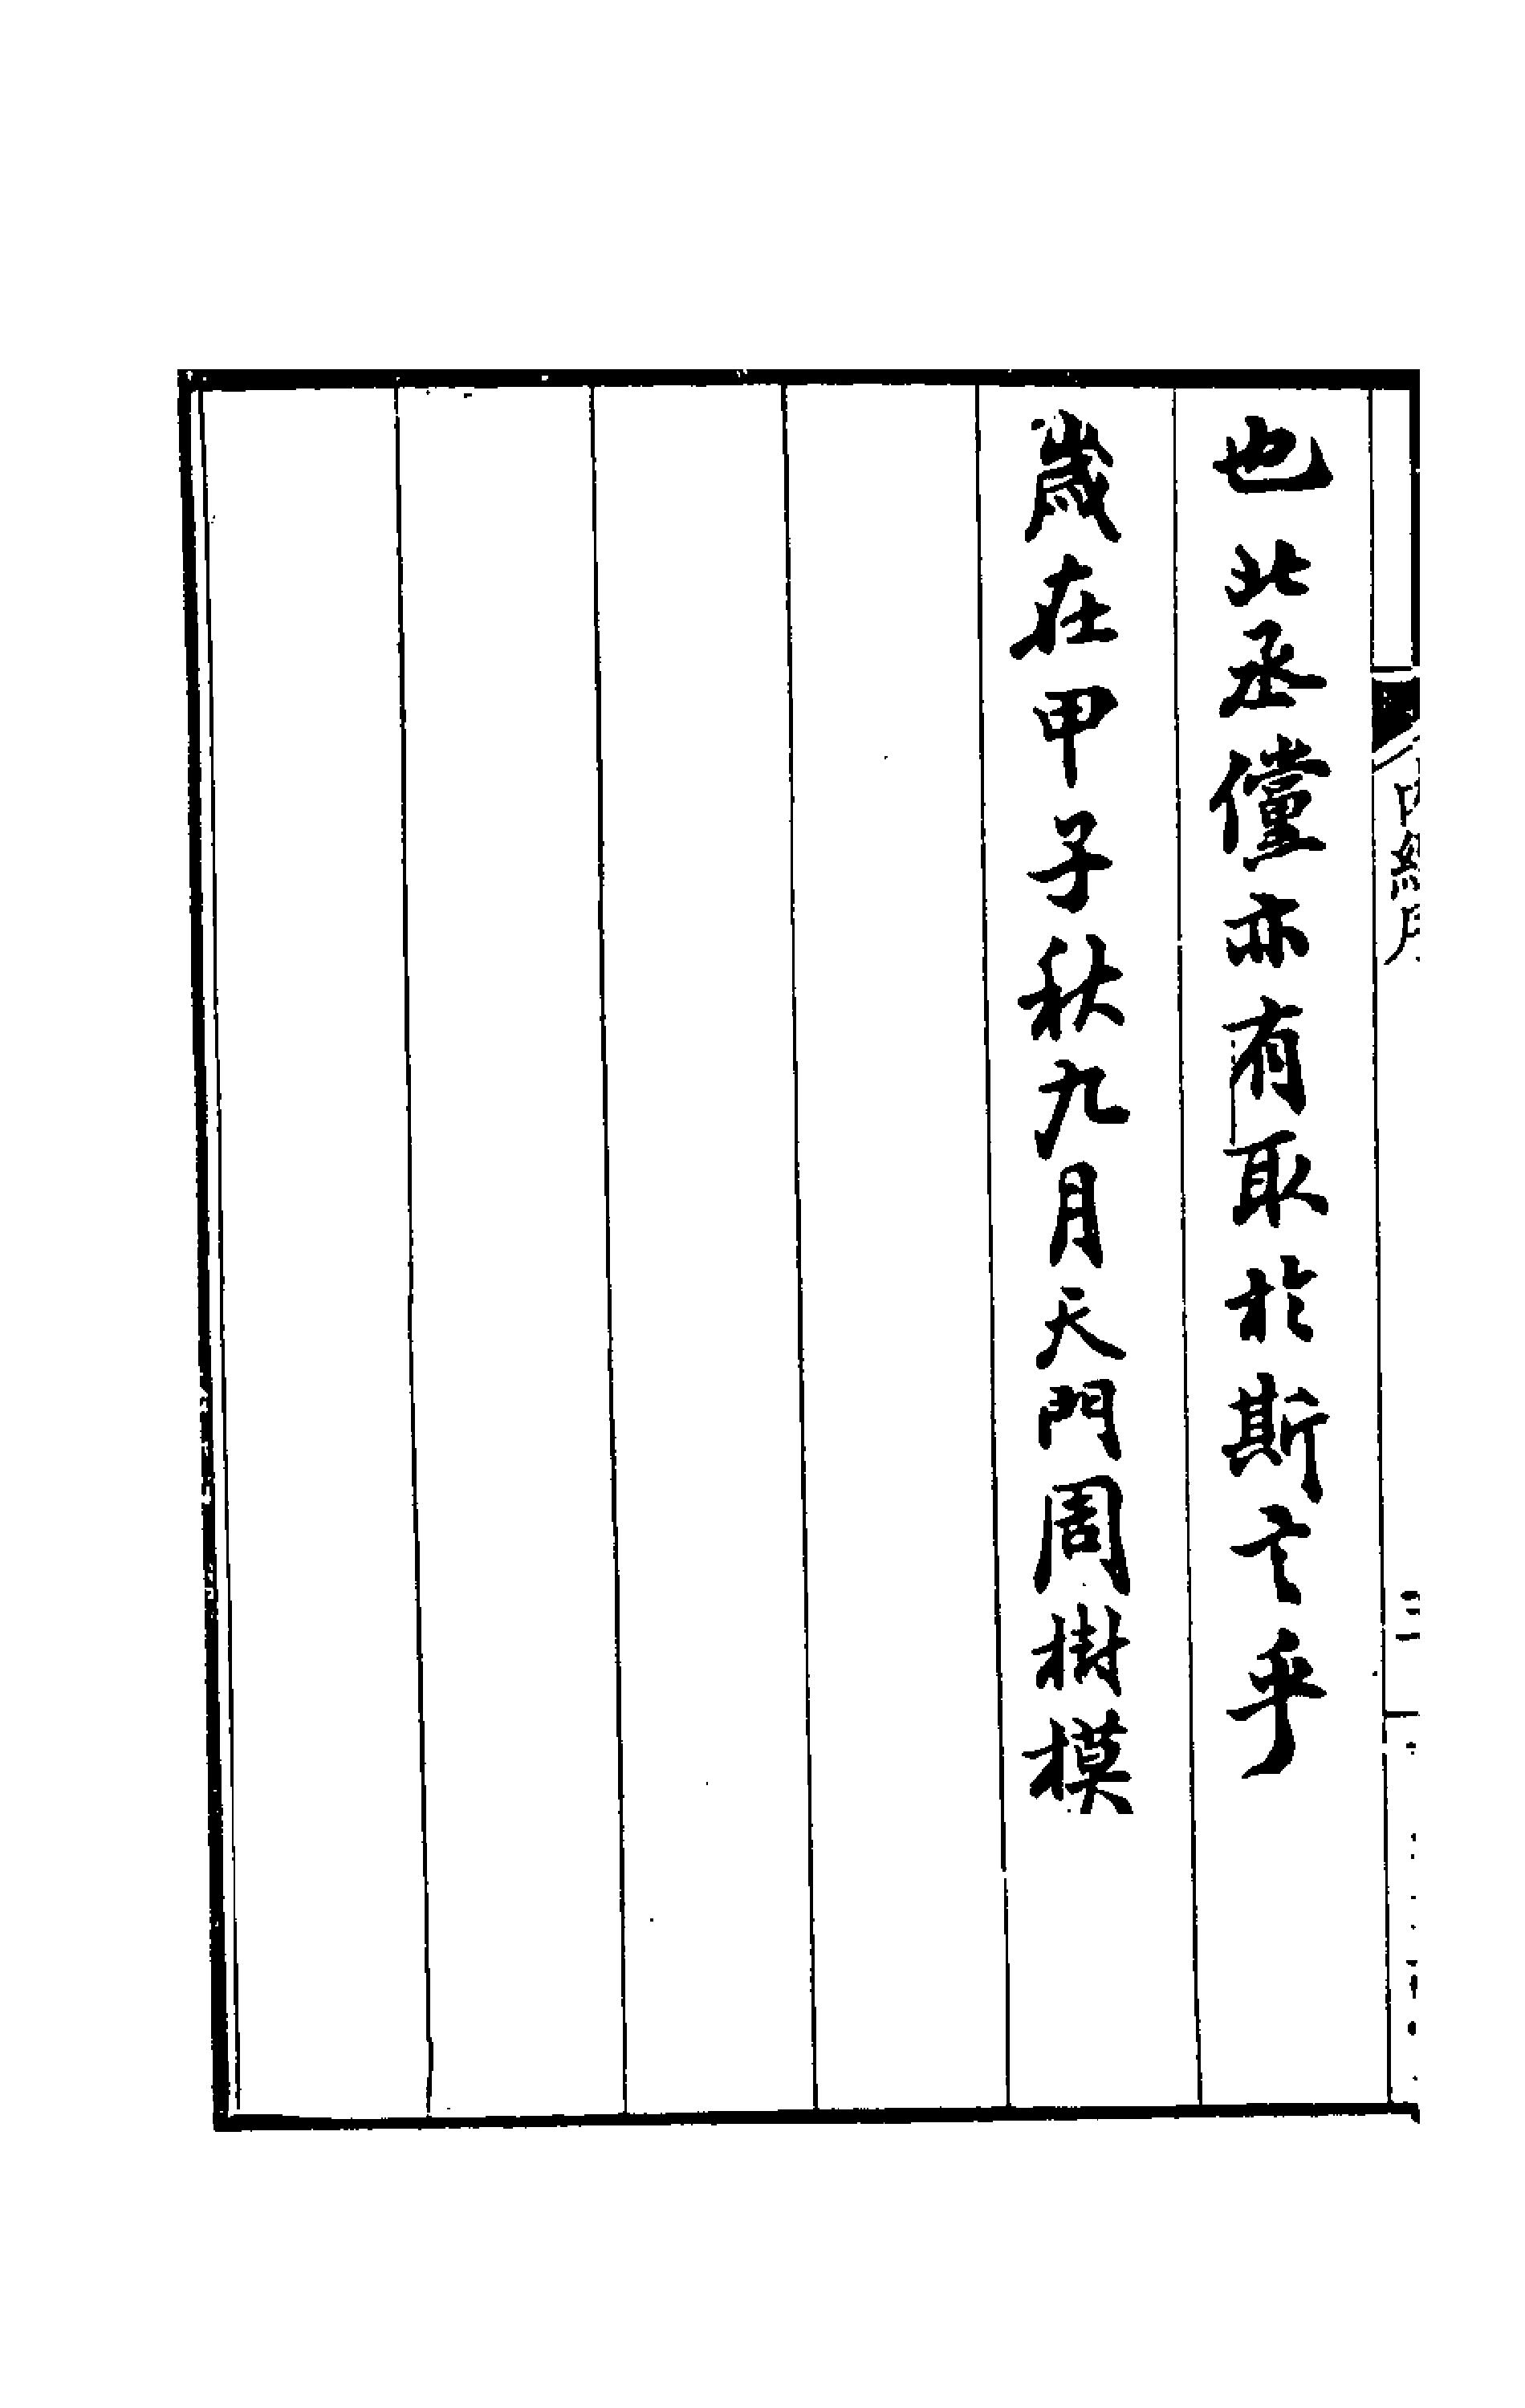 也北丞儻亦有取於斯言乎
歲在甲子秋九月天門周樹模
內經序